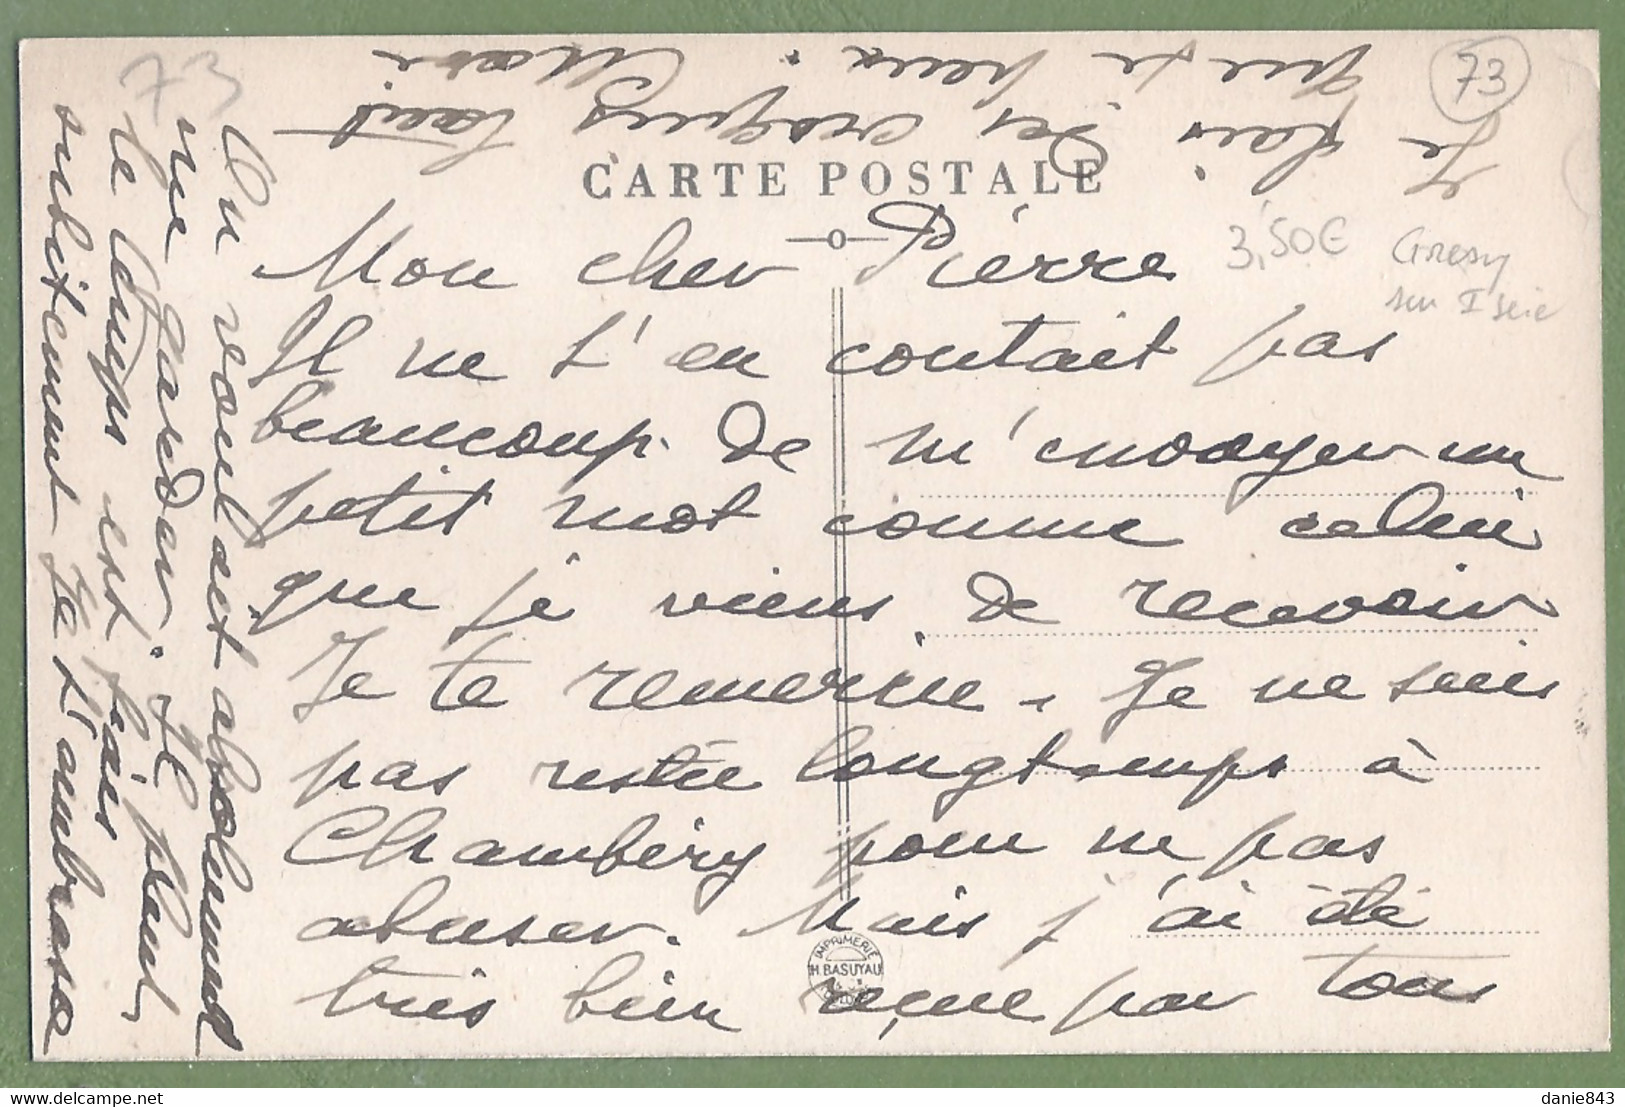 CARTE POSTALE
73
73
3,50€
Gresy
sur Isère
Mon cher Pierre
Il ne t'en coutait pas
beaucoup de m'envoyer un
petit mot comme celui
que je viens de recevoir
Je te remercie. Je ne suis
pas restée longtemps à
Chambéry pour ne pas
abuser. Mais j'ai été
très bien reçue par tous
On voulait absolument
me garder. Il pleut
le temps est frais
subitement Je t'embrasse
Je fais des croquis tant
que je peux.
IMPRIMERIE
H. BASUYAU
danie843